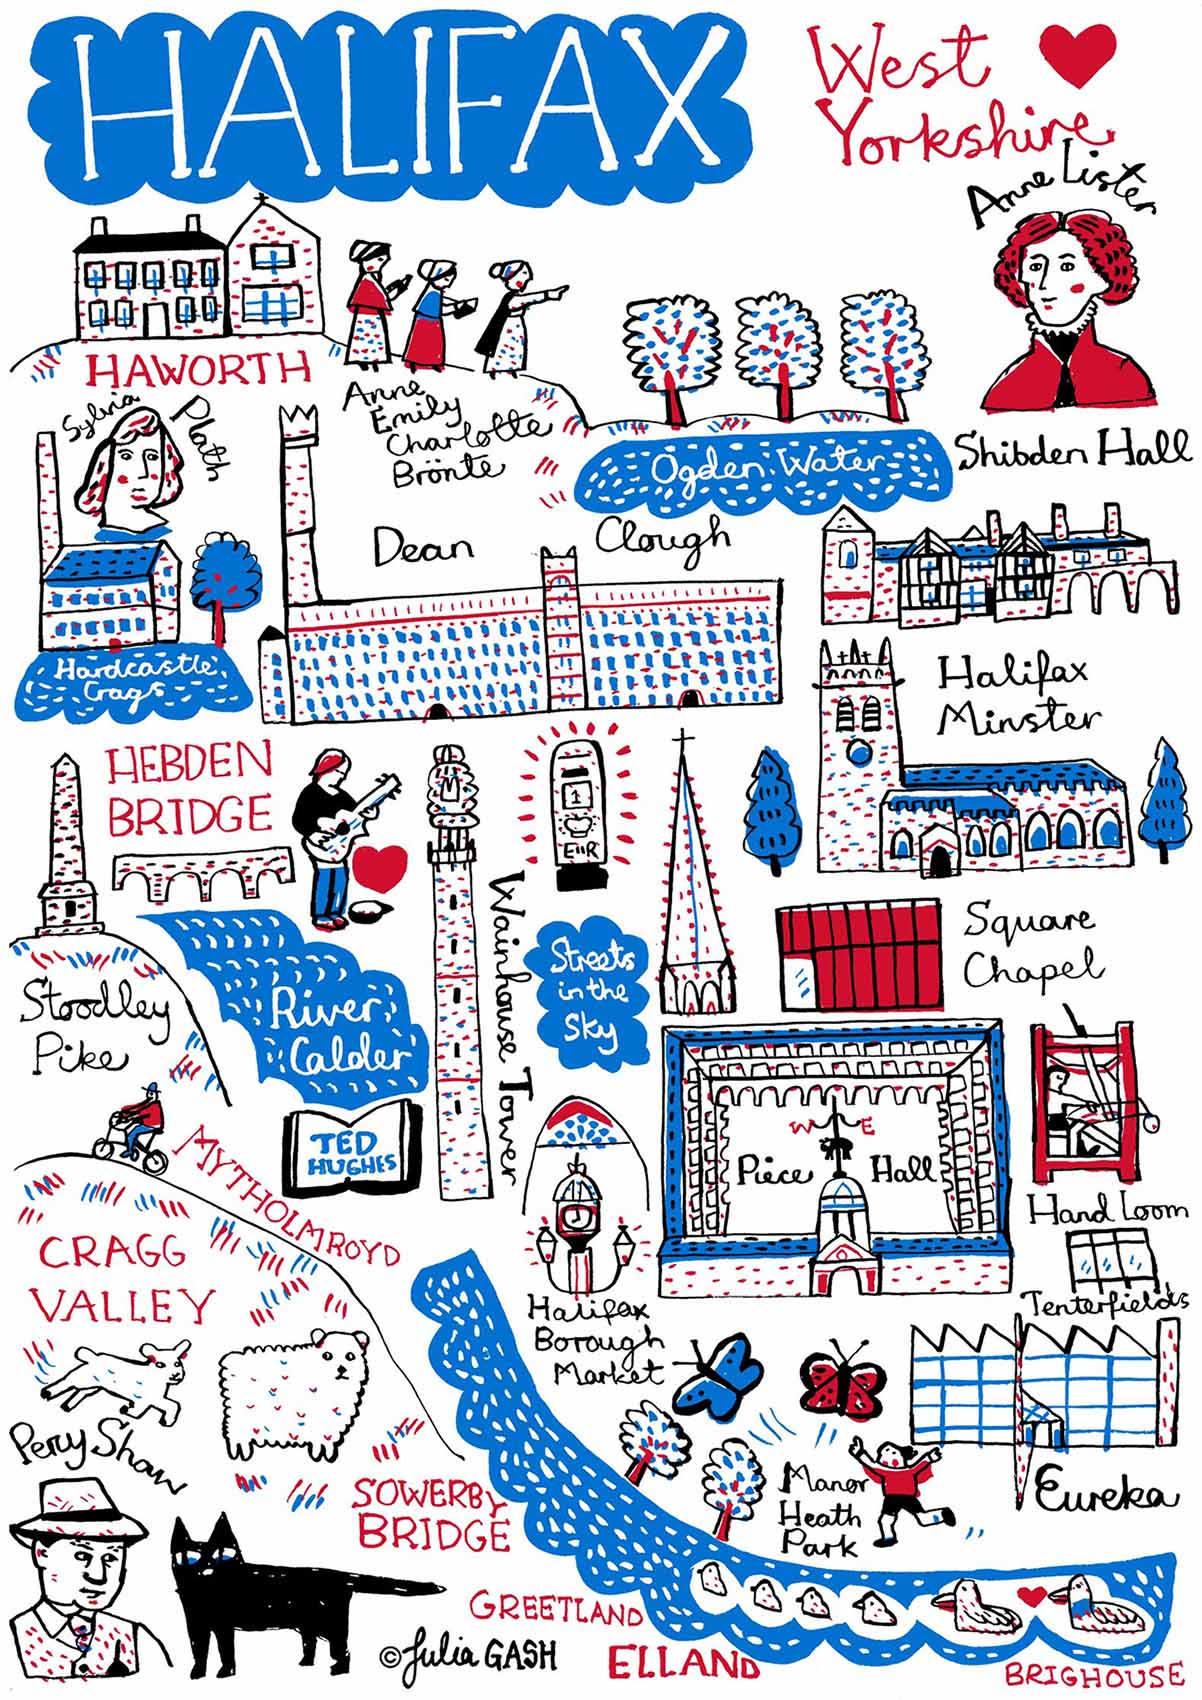 HALIFAX
West
Yorkshire
Anne Lister
HAWORTH
Anne
Emily
Charlotte
Brönte
Sylvia Plath
Ogden Water
Shibden Hall
Dean Clough
Hardcastle
Crags
Halifax
Minster
HEBDEN
BRIDGE
M
1
EIIR
Wainhouse Tower
Streets
in the
Sky
Square
Chapel
Stoodley
Pike
River
Calder
TED
HUGHES
MYTHOLMROYD
W E
Piece Hall
Hand Loom
CRAGG
VALLEY
Halifax
Borough
Market
Tenterfields
Percy Shaw
Manor
Heath
Park
Eureka
SOWERBY
BRIDGE
GREETLAND
© Julia GASH
ELLAND
BRIGHOUSE